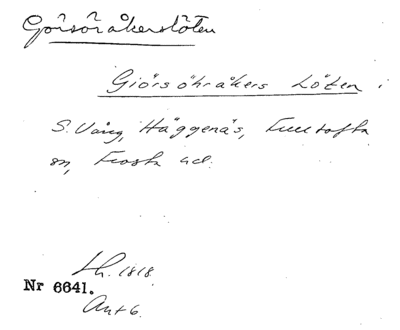 Görsöråkerslöten
Giörsöhråkers Löten i
S. Vång, Häggenäs, Fulltofta
sn, Frosta hd.
Lh. 1818.
Nr 6641.
Ant 6.